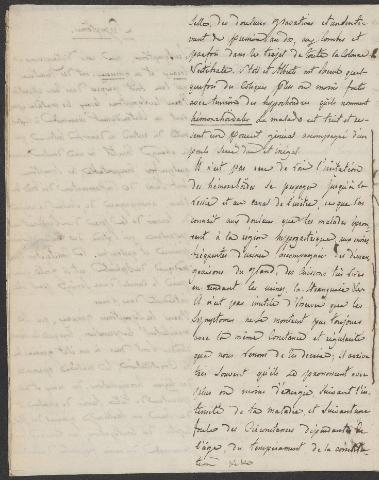 selles, des douleurs gravatives et
vant du perineum au dos, aux lombes et
parfois dans le trajet de toute la colonne
Vertebrale. Stoll et Alberti ont observé quel-
quefois des coliques plus ou moins fortes
avec tension des hypochondres qu'ils nomment
hémorrhoidales. Le malade est triste et res-
sent un prurit général accompagné d'un
pouls serré dur et inégal.
Il n'est pas rare de voir l'irritation
des hémorrhoïdes se propager jusqu'à la
Vessie et au canal de l'urètre, ce que l'on
connaît aux douleurs que les malades épreu-
vent à la région hypogastrique, aux envies
fréquentes d'uriner accompagnées de deman-
geaisons du gland, des cuissons très vives
en rendant les urines, la Strangurie &c.
Il n'est pas inutile d'observer que les
Symptomes ne se montrent pas toujours
avec la même Constance et régularité
que nous venons de le dire; il arrive
très souvent qu'ils se prononcent avec
plus ou moins d'énergie suivant l'in-
tensité de la maladie, et suivant une
foule des Circonstances dépendantes de
l'âge, du temperament de la constitu-
tion &&